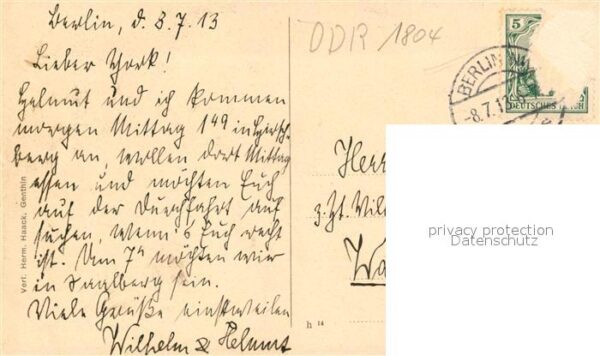 Berlin, d. 8.7.13
Lieber York!
Helmut und ich kommen
morgen Mittag 1 49 in Hirsch-
berg an, wollen dort Mittag
essen und möchten Euch
auf der Durchfahrt auf
suchen, wenn's Euch recht
ist. Um 7 h möchten wir
in Saalberg sein.
Viele Grüße einstweilen
Wilhelm & Helmut
Verl. Herm. Haack, Genthin
DDR 1804
5
BERLIN
-8.7.13
DEUTSCHES REICH
Herr
z. Zt. Vil
Wa
h 14
privacy protection
Datenschutz